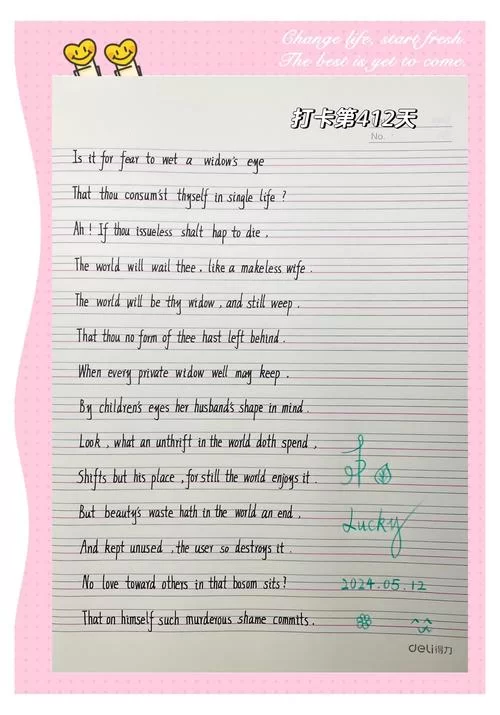 Change life, start fresh.
The best is yet to come.
打卡第412天
No.
Is it for fear to wet a widow's eye
That thou consum'st thyself in single life ?
Ah ! If thou issueless shalt hap to die .
The world will wail thee . like a makeless wife .
The world will be thy widow , and still weep .
That thou no form of thee hast left behind .
When every private widow well may keep .
By children's eyes her husband's shape in mind .
Look , what an unthrift in the world doth spend ,
Shifts but his place , for still the world enjoys it .
But beauty's waste hath in the world an end ,
And kept unused , the user so destroys it .
No love toward others in that bosom sits ?
That on himself such murderous shame commits .
Lucky
2024.05.12
deli得力